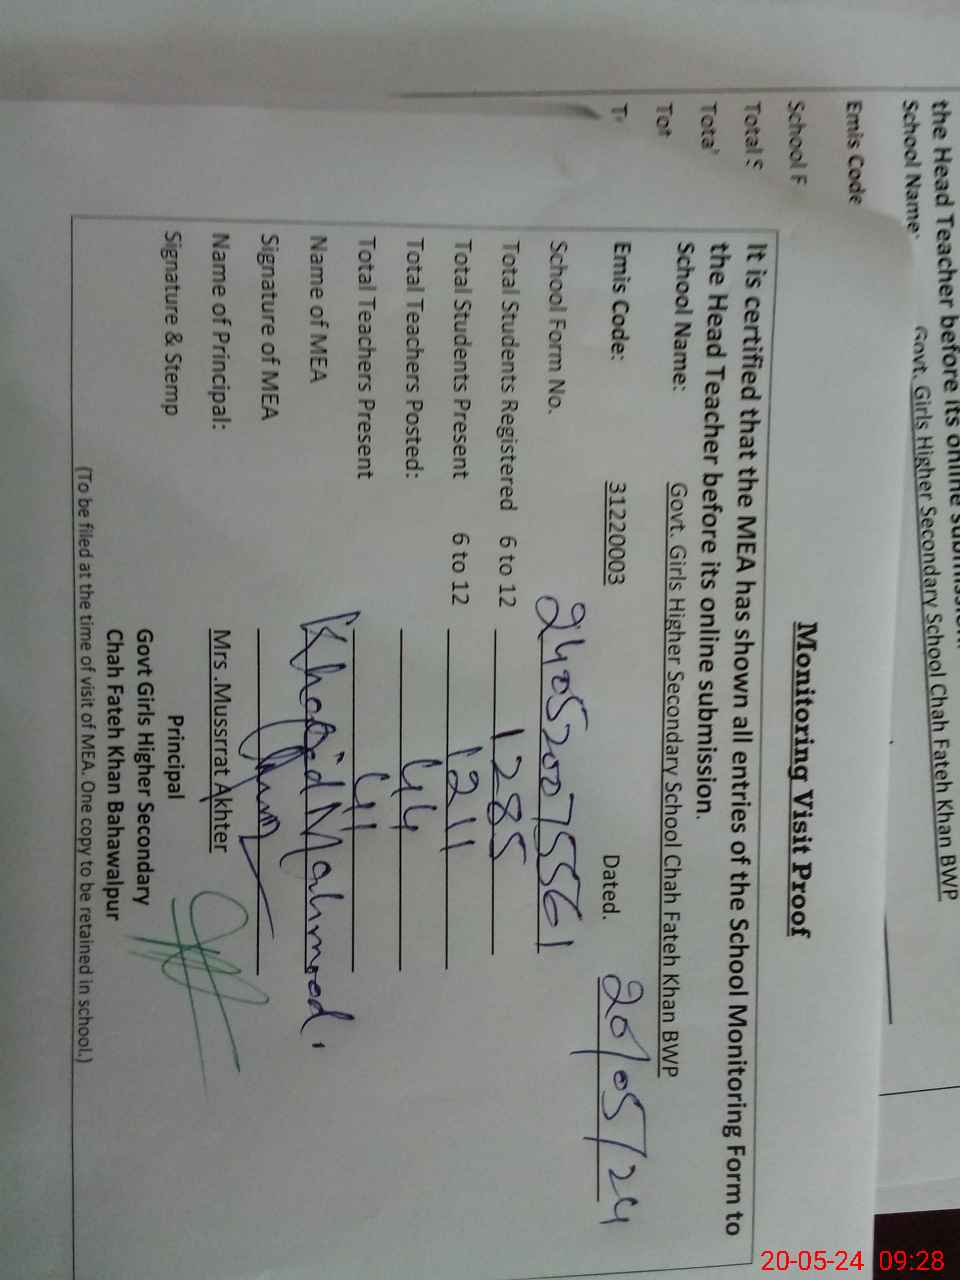 the Head Teacher before its online submission.
School Name:
Govt. Girls Higher Secondary School Chah Fateh Khan BWP
Emis Code
School F
Total S
Monitoring Visit Proof
It is certified that the MEA has shown all entries of the School Monitoring Form to
the Head Teacher before its online submission.
School Name: Govt. Girls Higher Secondary School Chah Fateh Khan BWP
Emis Code: 31220003 Dated. 20/05/24
School Form No. 240520075561
Total Students Registered 6 to 12 1285
Total Students Present 6 to 12 1211
Total Teachers Posted: 44
Total Teachers Present 41
Name of MEA Khalid Mahmood
Signature of MEA
Name of Principal: Mrs .Mussrrat Akhter
Signature & Stemp
Principal
Govt Girls Higher Secondary
Chah Fateh Khan Bahawalpur
(To be filed at the time of visit of MEA. One copy to be retained in school.)
20-05-24 09:28